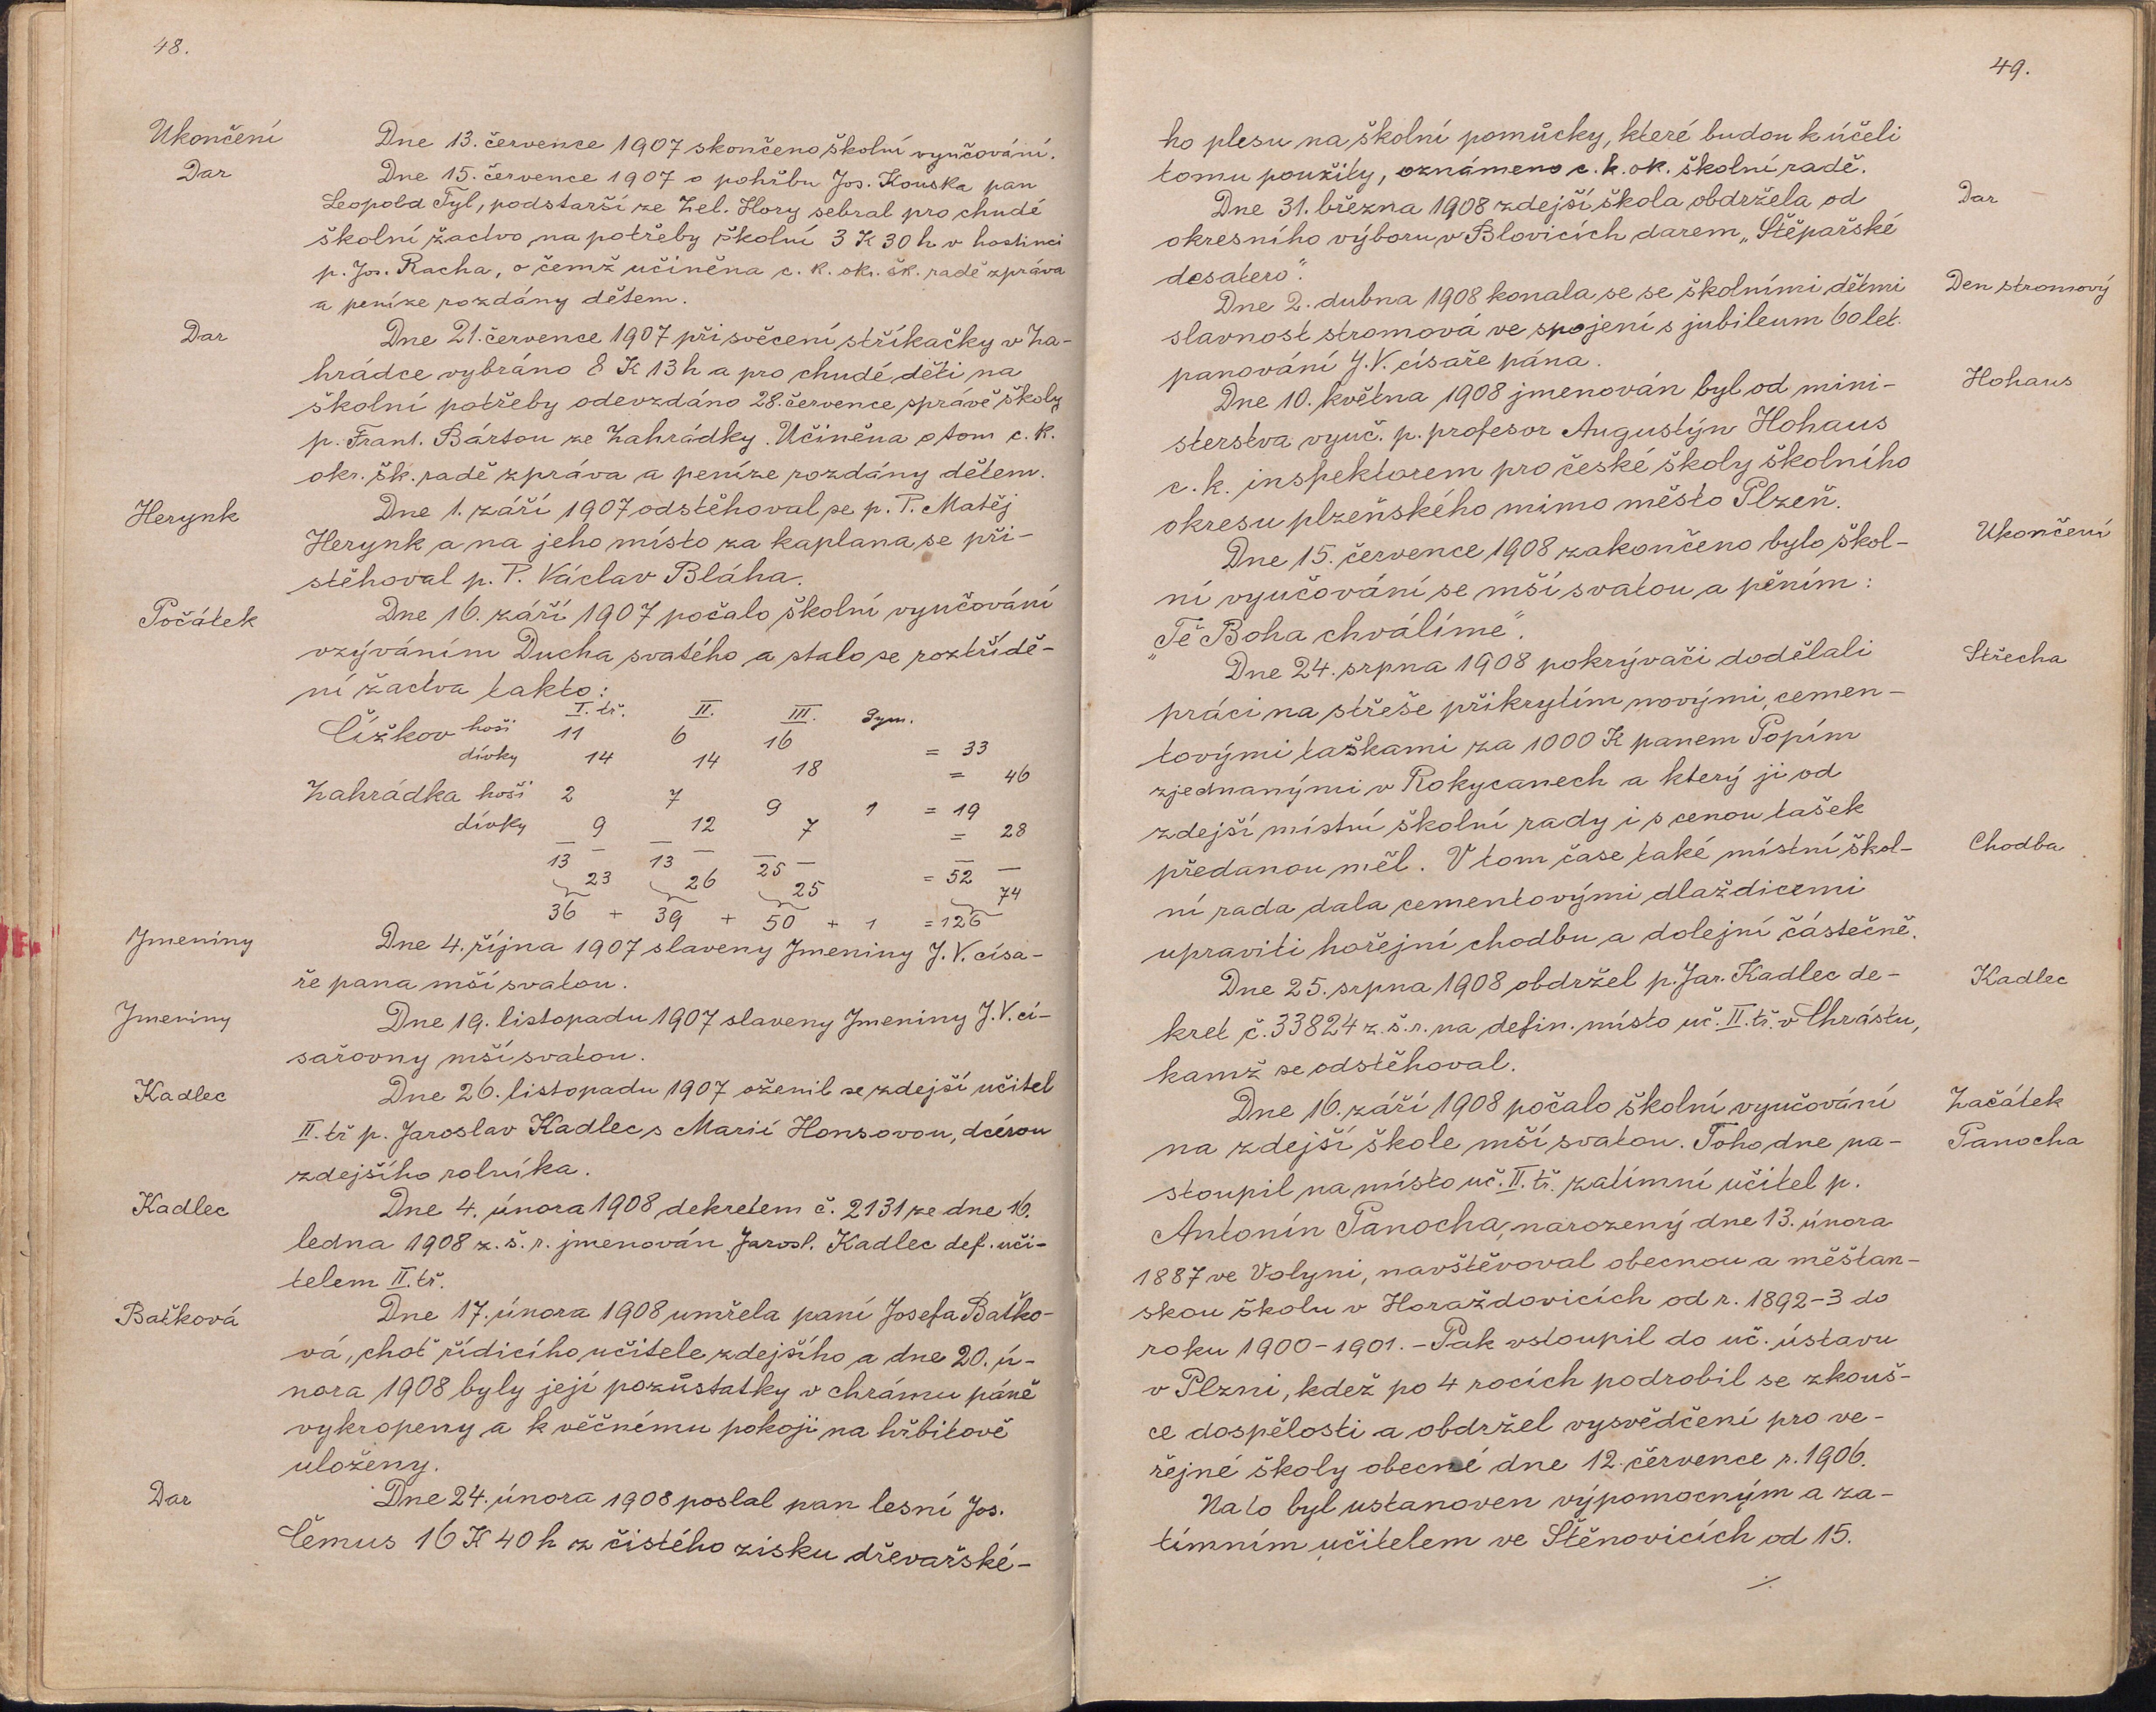 48.
Ukončení
Dne 13. července 1907 skončeno školní vyučování.
Dar
Dne 15. července 1907 o pohřbu Jos. Kouska pan
Leopold Tyl, podstarší ze Zel. Hory sebral pro chudé
školní žactvo na potřeby školní 3 K 30 h v hostinci
p. Jos. Racha, o čemž učiněna c. k. okr. šk. radě zpráva
a peníze rozdány dětem.
Dar
Dne 21. července 1907 při svěcení stříkačky v Za-
hrádce vybráno 8 K 13 h a pro chudé děti na
školní potřeby odevzdáno 28. července správě školy
p. Frant. Bártou ze Zahrádky. Učiněna o tom c. k.
okr. šk. radě zpráva a peníze rozdány dětem.
Herynk
Dne 1. září 1907 odstěhoval se p. P. Matěj
Herynk a na jeho místo za kaplana se při-
stěhoval p. P. Václav Bláha.
Počátek
Dne 16. září 1907 počalo školní vyučování
vzýváním Ducha svatého a stalo se roztřídě-
ní žactva takto:
I. tř. II. III. Gym.
Čížkov hoši 11 6 16 = 33
dívky 14 14 18 = 46
Zahrádka hoši 2 7 9 1 = 19
dívky 9 12 7 = 28
13 13 25 = 52
23 26 25 74
36 + 39 + 50 + 1 = 126
Jmeniny
Dne 4. října 1907 slaveny Jmeniny J. V. císa-
ře pana mší svatou.
Jmeniny
Dne 19. listopadu 1907 slaveny Jmeniny J. V. cí-
sařovny mší svatou.
Kadlec
Dne 26. listopadu 1907 oženil se zdejší učitel
II. tř p. Jaroslav Kadlec s Marií Honsovou, dcérou
zdejšího rolníka.
Kadlec
Dne 4. února 1908 dekretem č. 2131 ze dne 16.
ledna 1908 z. š. r. jmenován Jarosl. Kadlec def. uči-
telem II. tř.
Baťková
Dne 17. února 1908 umřela paní Josefa Baťko-
vá, choť řídicího učitele zdejšího a dne 20. ú-
nora 1908 byly její pozůstatky v chrámu páně
vykropeny a k věčnému pokoji na hřbitově
uloženy.
Dar
Dne 24. února 1908 poslal pan lesní Jos.
Čemus 16 K 40 h z čistého zisku dřevařské-
49.
ho plesu na školní pomůcky, které budou k účeli
tomu použity, oznámeno c. k. ok. školní radě.
Dne 31. března 1908 zdejší škola obdržela od
Dar
okresního výboru v Blovicích darem „Štěpařské
desatero".
Dne 2. dubna 1908 konala se se školními dětmi
Den stromový
slavnost stromová ve spojení s jubileum 60 let.
panování J. V. císaře pána.
Dne 10. května 1908 jmenován byl od mini-
Hohaus
sterstva vyuč. p. profesor Augustýn Hohaus
c. k. inspektorem pro české školy školního
okresu plzeňského mimo město Plzeň.
Dne 15. července 1908 zakončeno bylo škol-
Ukončení
ní vyučování se mší svatou a pěním:
„Tě Boha chválíme".
Dne 24. srpna 1908 pokrývači dodělali
Střecha
práci na střeše přikrytím novými, cemen-
tovými taškami za 1000 K panem Popím
zjednanými v Rokycanech a který ji od
zdejší místní školní rady i s cenou tašek
předanou měl. V tom čase také místní škol-
Chodba
ní rada dala cementovými dlaždicemi
upraviti hořejní chodbu a dolejní částečně.
Dne 25. srpna 1908 obdržel p. Jar. Kadlec de-
Kadlec
kret č. 33824 z. š. r. na defin. místo uč. II. tř. v Chrástu,
kamž se odstěhoval.
Dne 16. září 1908 počalo školní vyučování
Začátek
na zdejší škole mší svatou. Toho dne na-
Panocha
stoupil na místo uč. II. tř. zatímní učitel p.
Antonín Panocha, narozený dne 13. února
1887 ve Volyni, navštěvoval obecnou a měšťan-
skou školu v Horažďovicích od r. 1892-3 do
roku 1900-1901. - Pak vstoupil do uč. ústavu
v Plzni, kdež po 4 rocích podrobil se zkouš-
ce dospělosti a obdržel vysvědčení pro ve-
řejné školy obecné dne 12. července r. 1906.
Na to byl ustanoven výpomocným a za-
tímním učitelem ve Štěnovicích od 15.
./.